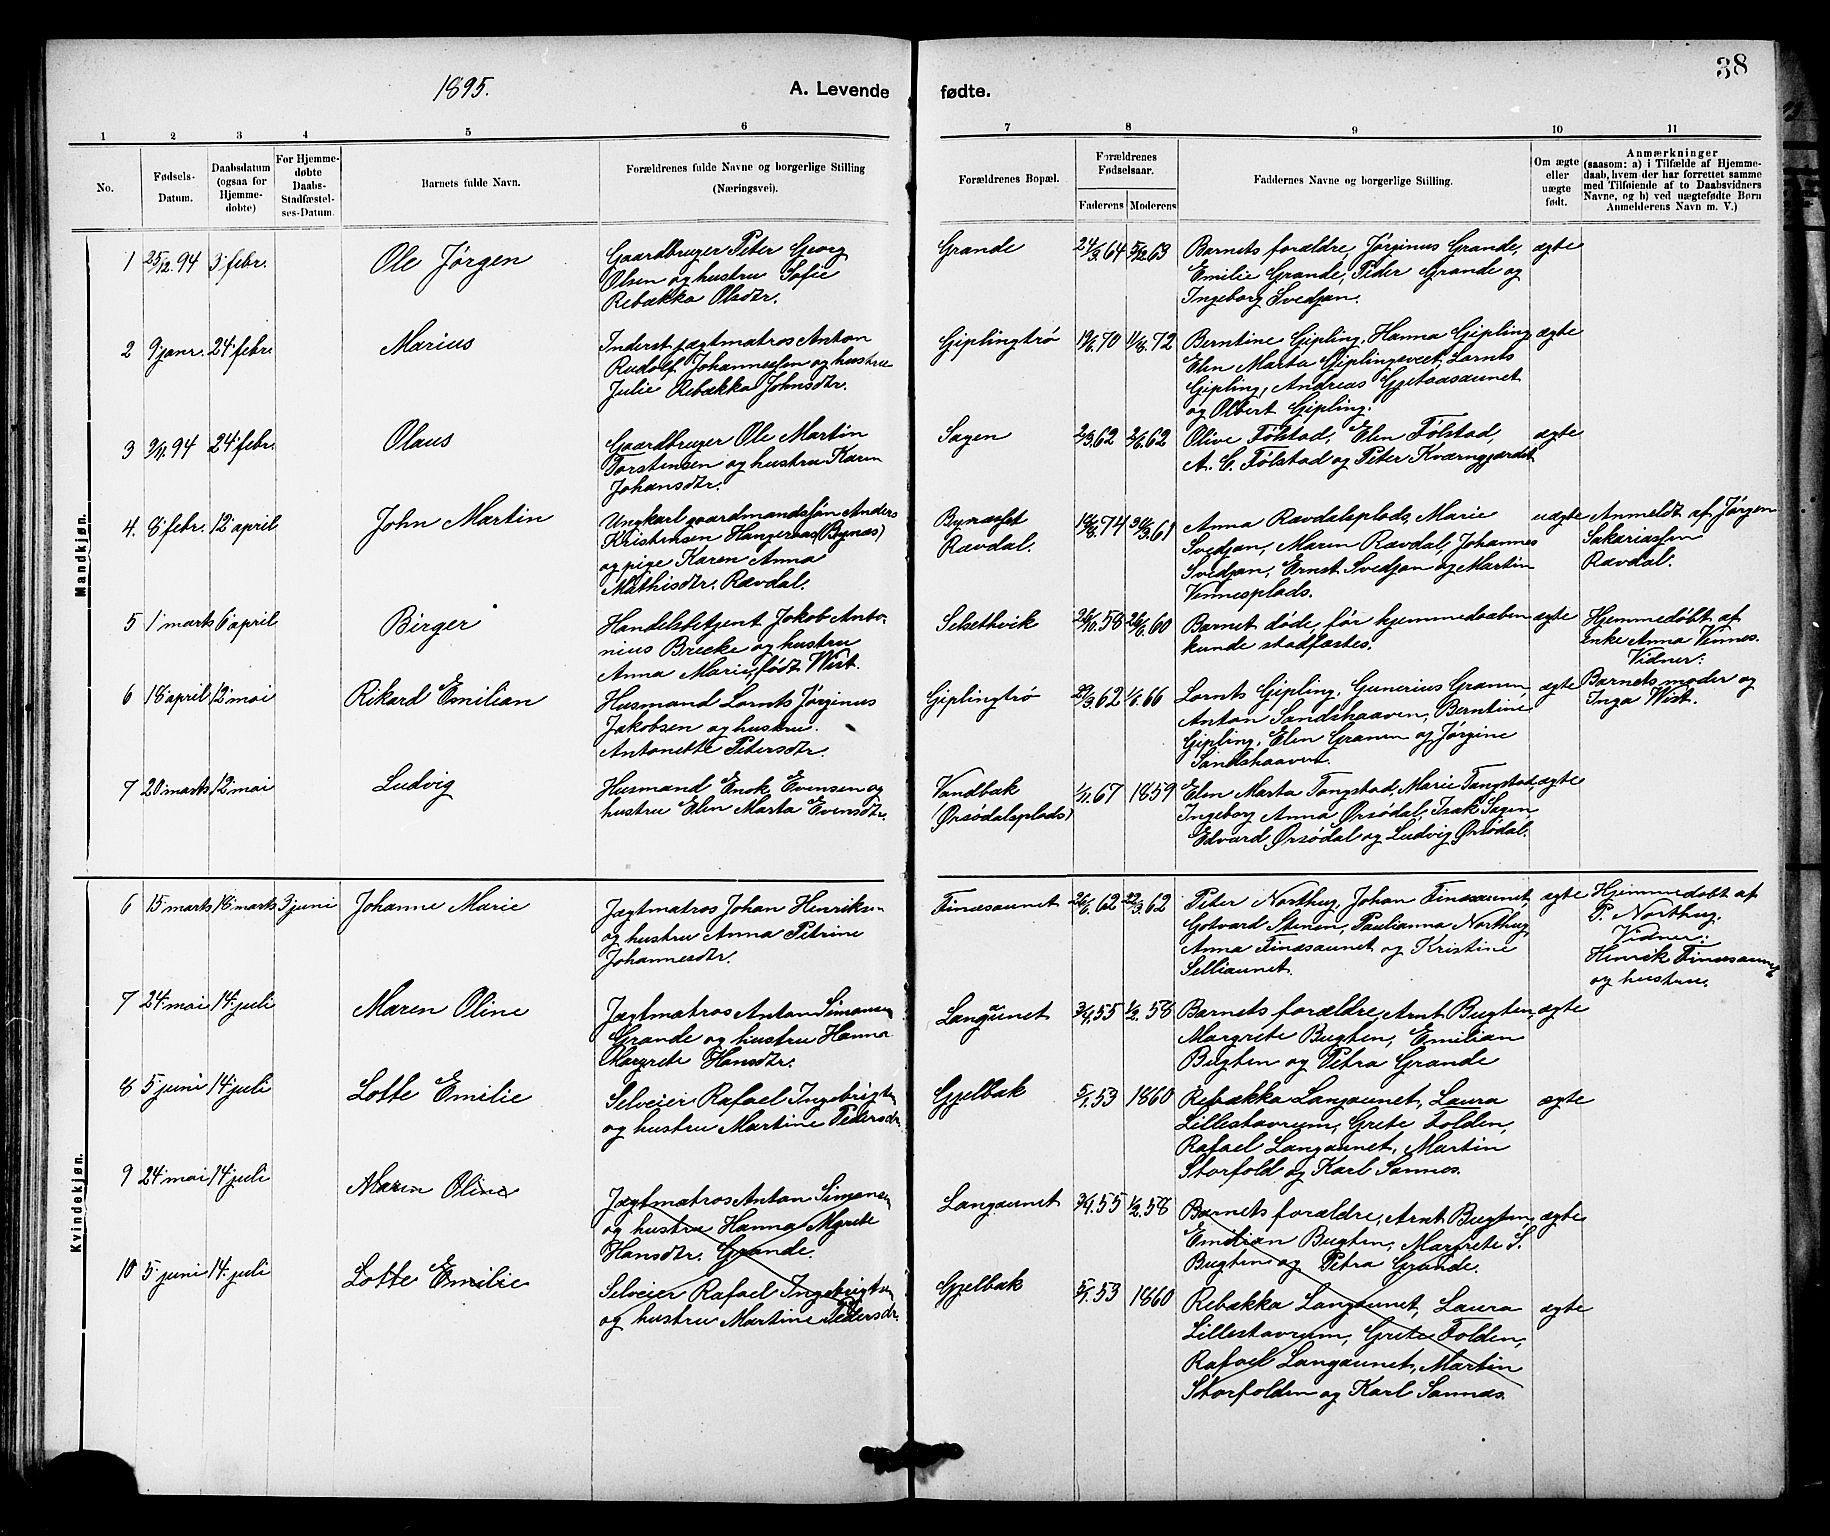 38
1895.
A. Levende
fødte.
1 2 3 4 5 6 7 8 9 10 11
No.
Fødsels-
Datum.
Daabsdatum
(ogsaa for
Hjemme-
døbte)
For Hjemme-
døbte
Daabs-
Stadfæstel-
ses-Datum.
Barnets fulde Navn.
Forældrenes fulde Navne og borgerlige Stilling
(Næringsvei).
Forældrenes Bopæl.
Forældrenes
Fødselsaar.
Faderens Moderens
Faddernes Navne og borgerlige Stilling.
Om ægte
eller
uægte
født.
Anmærkninger
(saasom: a) i Tilfælde af Hjemme-
daab, hvem der har forrettet samme
med Tilføiende af to Daabsvidners
Navne, og b) ved uægtefødte Børn
Anmelderens Navn m. V.)
Mandkjøn.
1 25/12.94 3. febr. Ole Jørgen
Gaardbruger Peter Georg
Olsen og hustru Sofie
Rebækka Olsdtr.
Grande
24/3.64 5/12.63
Barnets forældre, Jørginus Grande,
Emilie Grande, Peder Grande og
Ingeborg Svedjan.
ægte
2 9. janr. 24. febr. Marius
Inderst jægtmatros Anton
Rudolf Johannessen og hustru
Julie Rebækka Johnsdtr.
Giplingtrø
70 72
Berntine Gipling, Hanna Gipling,
Elen Marta Giplingsveet, Lornts
Gipling, Andreas Gjetaasaunet
og Olbert Gipling.
ægte
3 94 24. febr. Olaus
Gaardbruger Ole Martin
Torstensen og hustru Karen
Johansdtr.
Sagen
2/3.62 2/6.62
Olive Følstad, Elen Følstad,
A. C. Følstad og Peter Kværngjærdet
ægte
4. 8. febr. 12. april John Martin
Ungkarl gaardmandssøn Anders
Kristensen Hangernæs (Bynæs)
og pige Karen Anna
Mathisdtr. Rævdal.
Bynæsset
Rævdal.
74 61
Anna Rævdalsplads, Marie
Svedjan, Maren Rævdal, Johannes
Svedjan, Ernst Svedjan og Martin
Vennesplads.
uægte
Anmeldt af Jørgen
Sakariassen
Rævdal.
5 1. marts 6. april Birger
Handelsbetjent Jakob Anto-
nius Brecke og hustru
Anna Marie, født Wist.
Selsethvik
58 60
Barnet døde, før hjemmedaaben
kunde stadfæstes.
ægte
Hjemmedøbt af
enke Anna Vennes.
Vidner:
Barnets moder og
Inga Wist.
6 18. april 12. mai Rikard Emilian
Husmand Lornts Jørginus
Jakobsen og hustru
Antonette Petersdtr.
Giplingtrø
29/3.62 1/6.66
Lornts Gipling, Gunerius Granen,
Anton Sandshaaven, Berntine
Gipling, Elen Granen og Jørgine
Sandshaaven.
ægte
7 20. marts 12. mai Ludvig
Husmand Enok Evensen og
hustru Elen Marta Evensdtr.
Vandbæk
(Ørsødalsplads)
67 1859
Elen Marta Tangstad, Marie Tangstad,
Ingeborg Anna Ørsødal, Isak Sagen,
Edvard Ørsødal og Ludvig Ørsødal.
ægte
Kvindekjøn.
6 15. marts 18. marts 3. juni Johanne Marie
Jægtmatros Johan Henriksen
og hustru Anna Petrine
Johannesdtr.
Finæsaunet
62 62
Peter Northug, Johan Finæsaunet,
Gotvard Stenen, Paulianna Northug
Anna Finæsaunet og Kristine
Selliaunet.
ægte
Hjemmedøbt af
P. Northug.
Vidner:
Henrik Finæsaunet
og hustru.
7 24. mai 14. juli Maren Oline
Jægtmatros Anton Simonsen
Grande og hustru Hanna
Margrete Hansdtr.
Langaunet
3/4.55 1/2.58
Barnets forældre, Arnt Bugten,
Margrete Bugten, Emilian
Bugten og Petra Grande
ægte
8 5. juni 14. juli Lotte Emilie
Selveier Rafael Ingebrigtsen
og hustru Martine Pedersdtr.
Gjelbæk
5/1.53 1860
Rebækka Langaunet, Laura
Lillestavrum, Grete Folden,
Rafael Langaunet, Martin
Storfold og Karl Sannes.
ægte
9 24. mai 14. juli Maren Oline
Jægtmatros Anton Simonsen
og hustru Hanna Mgrete
Hansdtr. Grande.
Langaunet
3/4.55 1/2.58
Barnets forældre, Arnt Bugten,
Emilian Bugten, Margrete S.
Bugten og Petra Grande.
ægte
10 5. juni 14. juli Lotte Emilie
Selveier Rafael Ingebrigtsen
og hustru Martine Pedersdtr.
Gjelbæk
5/1.53 1860
Rebækka Langaunet, Laura
Lillestavrum, Grete Folden,
Rafael Langaunet, Martin
Storfolden og Karl Sannæs.
ægte